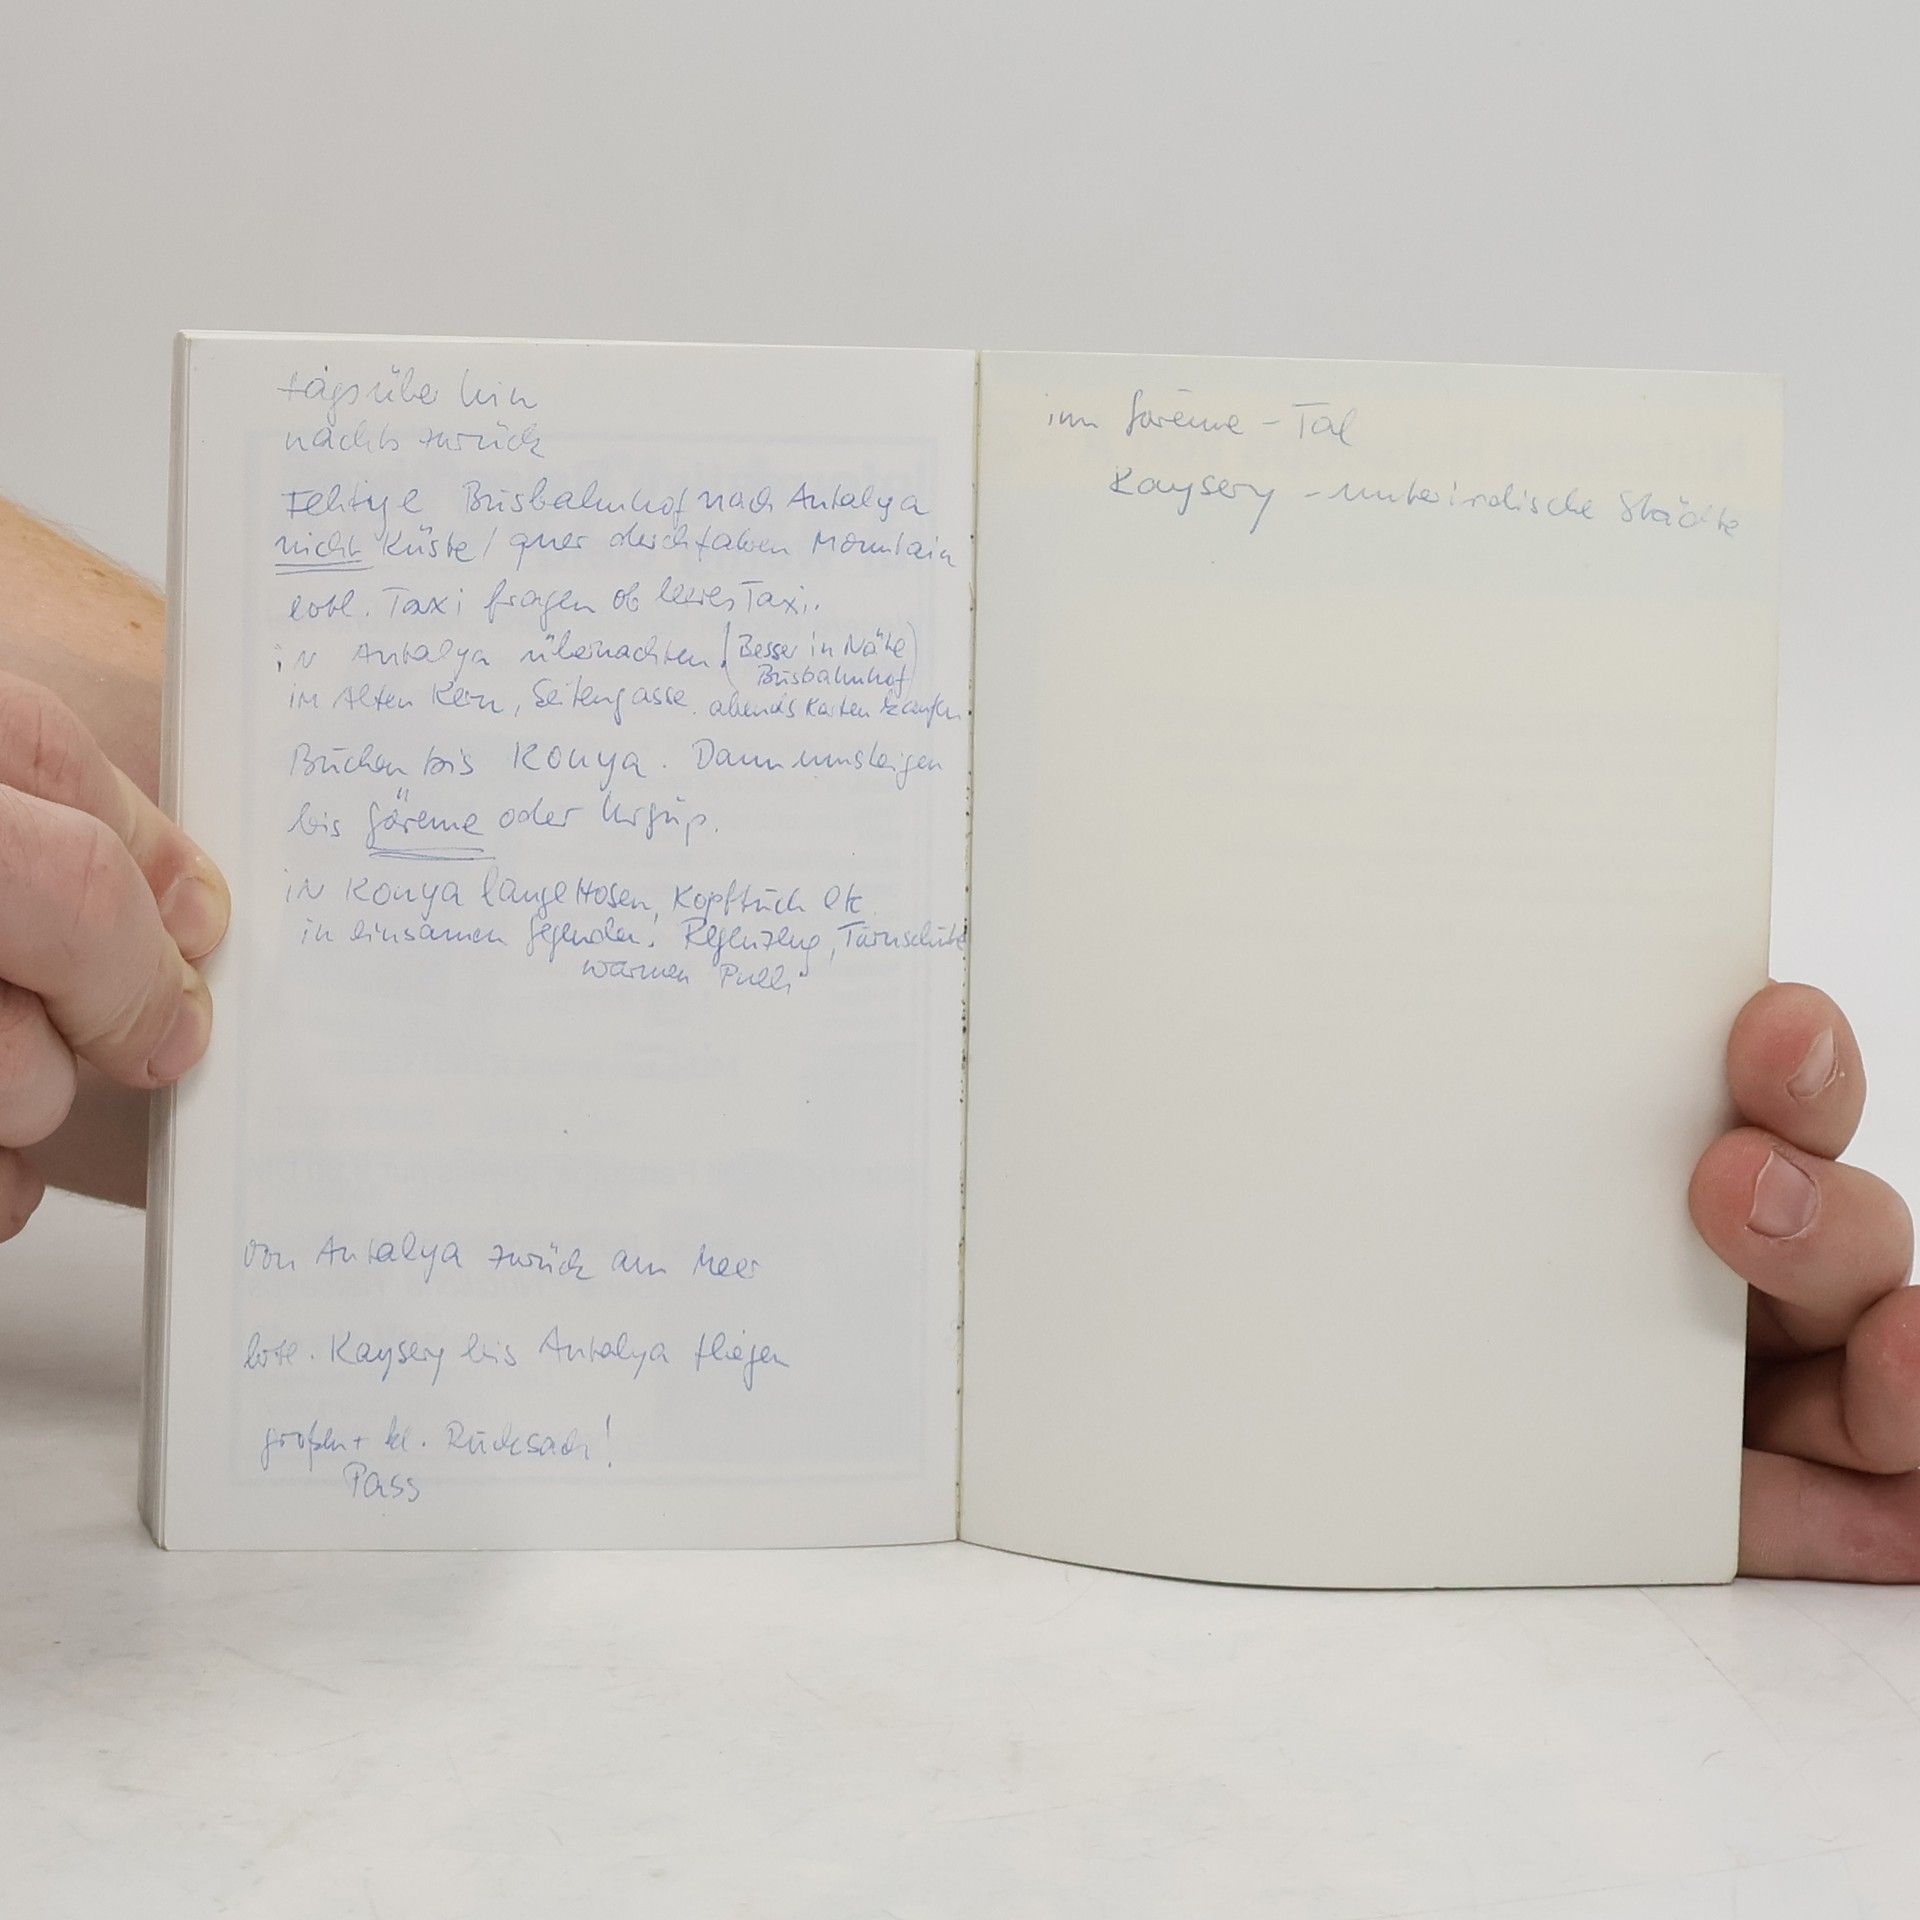 tagsüber hin
nachts zurück
Fehtiye Busbahnhof nach Antalya
nicht Küste / quer durchfahren Mountain
evtl. Taxi fragen ob leeres Taxi.
in Antalya übernachten. (Besser in Nähe Busbahnhof)
im Alten Kern, Seitengasse. abends Karten kaufen
Buchen bis Konya. Dann umsteigen
bis Göreme oder Ürgüp.
in Konya lange Hosen, Kopftuch etc
in einsamen Gegenden! Regenzeug, Turnschuhe
warmen Pulli
von Antalya zurück am Meer
evtl. Kaysery bis Antalya fliegen
großen + kl. Rucksack!
Pass
im Göreme - Tal
Kaysery - unterirdische Städte